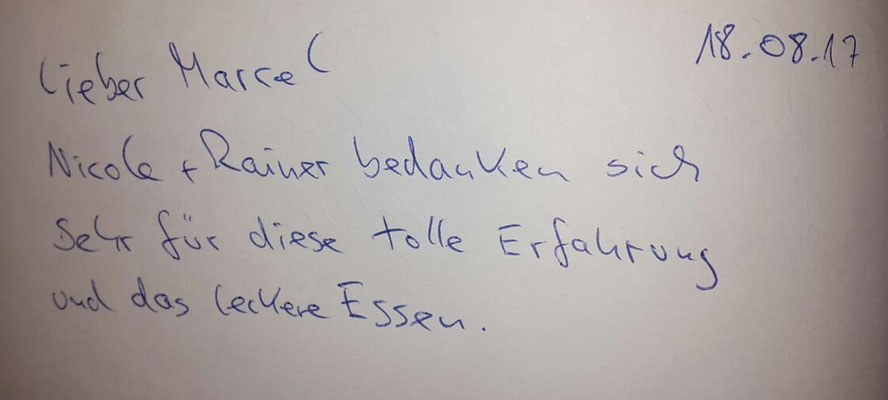 18.08.17
Lieber Marcel
Nicole + Rainer bedanken sich
sehr für diese tolle Erfahrung
und das leckere Essen.